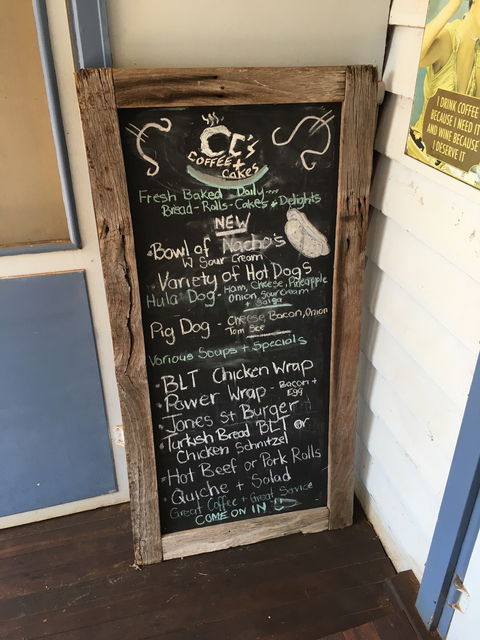 CC's
COFFEE +
Cakes
Fresh Baked Daily...
Bread-Rolls-Cakes + Delights
NEW
Bowl of Nacho's
W Sour Cream
Variety of Hot Dogs
Hula Dog - Ham, Cheese, Pineapple
Onion, Sour Cream
+ Salsa
Pig Dog - Cheese, Bacon, Onion
Tom Sce
Various Soups + Specials
BLT Chicken Wrap
Power Wrap - Bacon +
Egg
Jones St Burger
Turkish Bread BLT or
Chicken Schnitzel
Hot Beef or Pork Rolls
Quiche + Salad
Great Coffee + Great Service
COME ON IN
I DRINK COFFEE
BECAUSE I NEED IT
AND WINE BECAUSE
I DESERVE IT